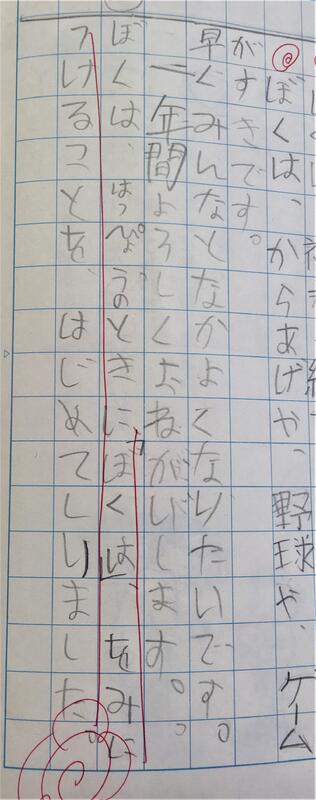 ぼくは、からあげや、野球や、ゲーム
がすきです。
早くみんなとなかよくなりたいです。
一年間よろしくおねがいします。
ぼくは、はっぴょうのときに「ぼくは」、をみに
つけることを、はじめてしりました。